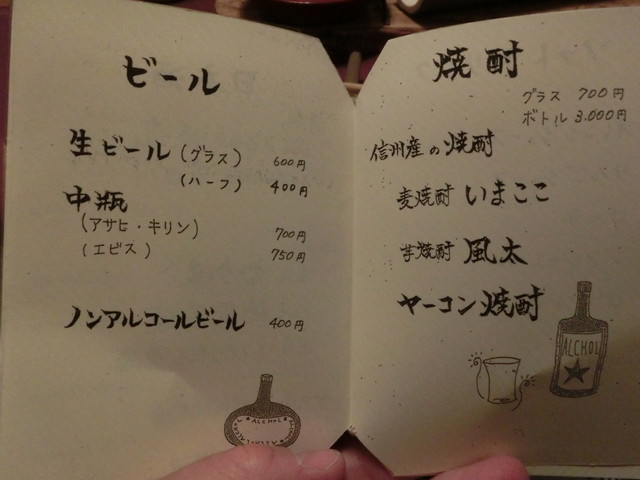 ビール
生ビール (グラス) 600円
(ハーフ) 400円
中瓶
(アサヒ・キリン) 700円
(エビス) 750円
ノンアルコールビール 400円
ALCHOL
焼酎
グラス 700円
ボトル 3,000円
信州産の焼酎
麦焼酎 いまここ
芋焼酎 風太
ヤーコン焼酎
ALCHOL